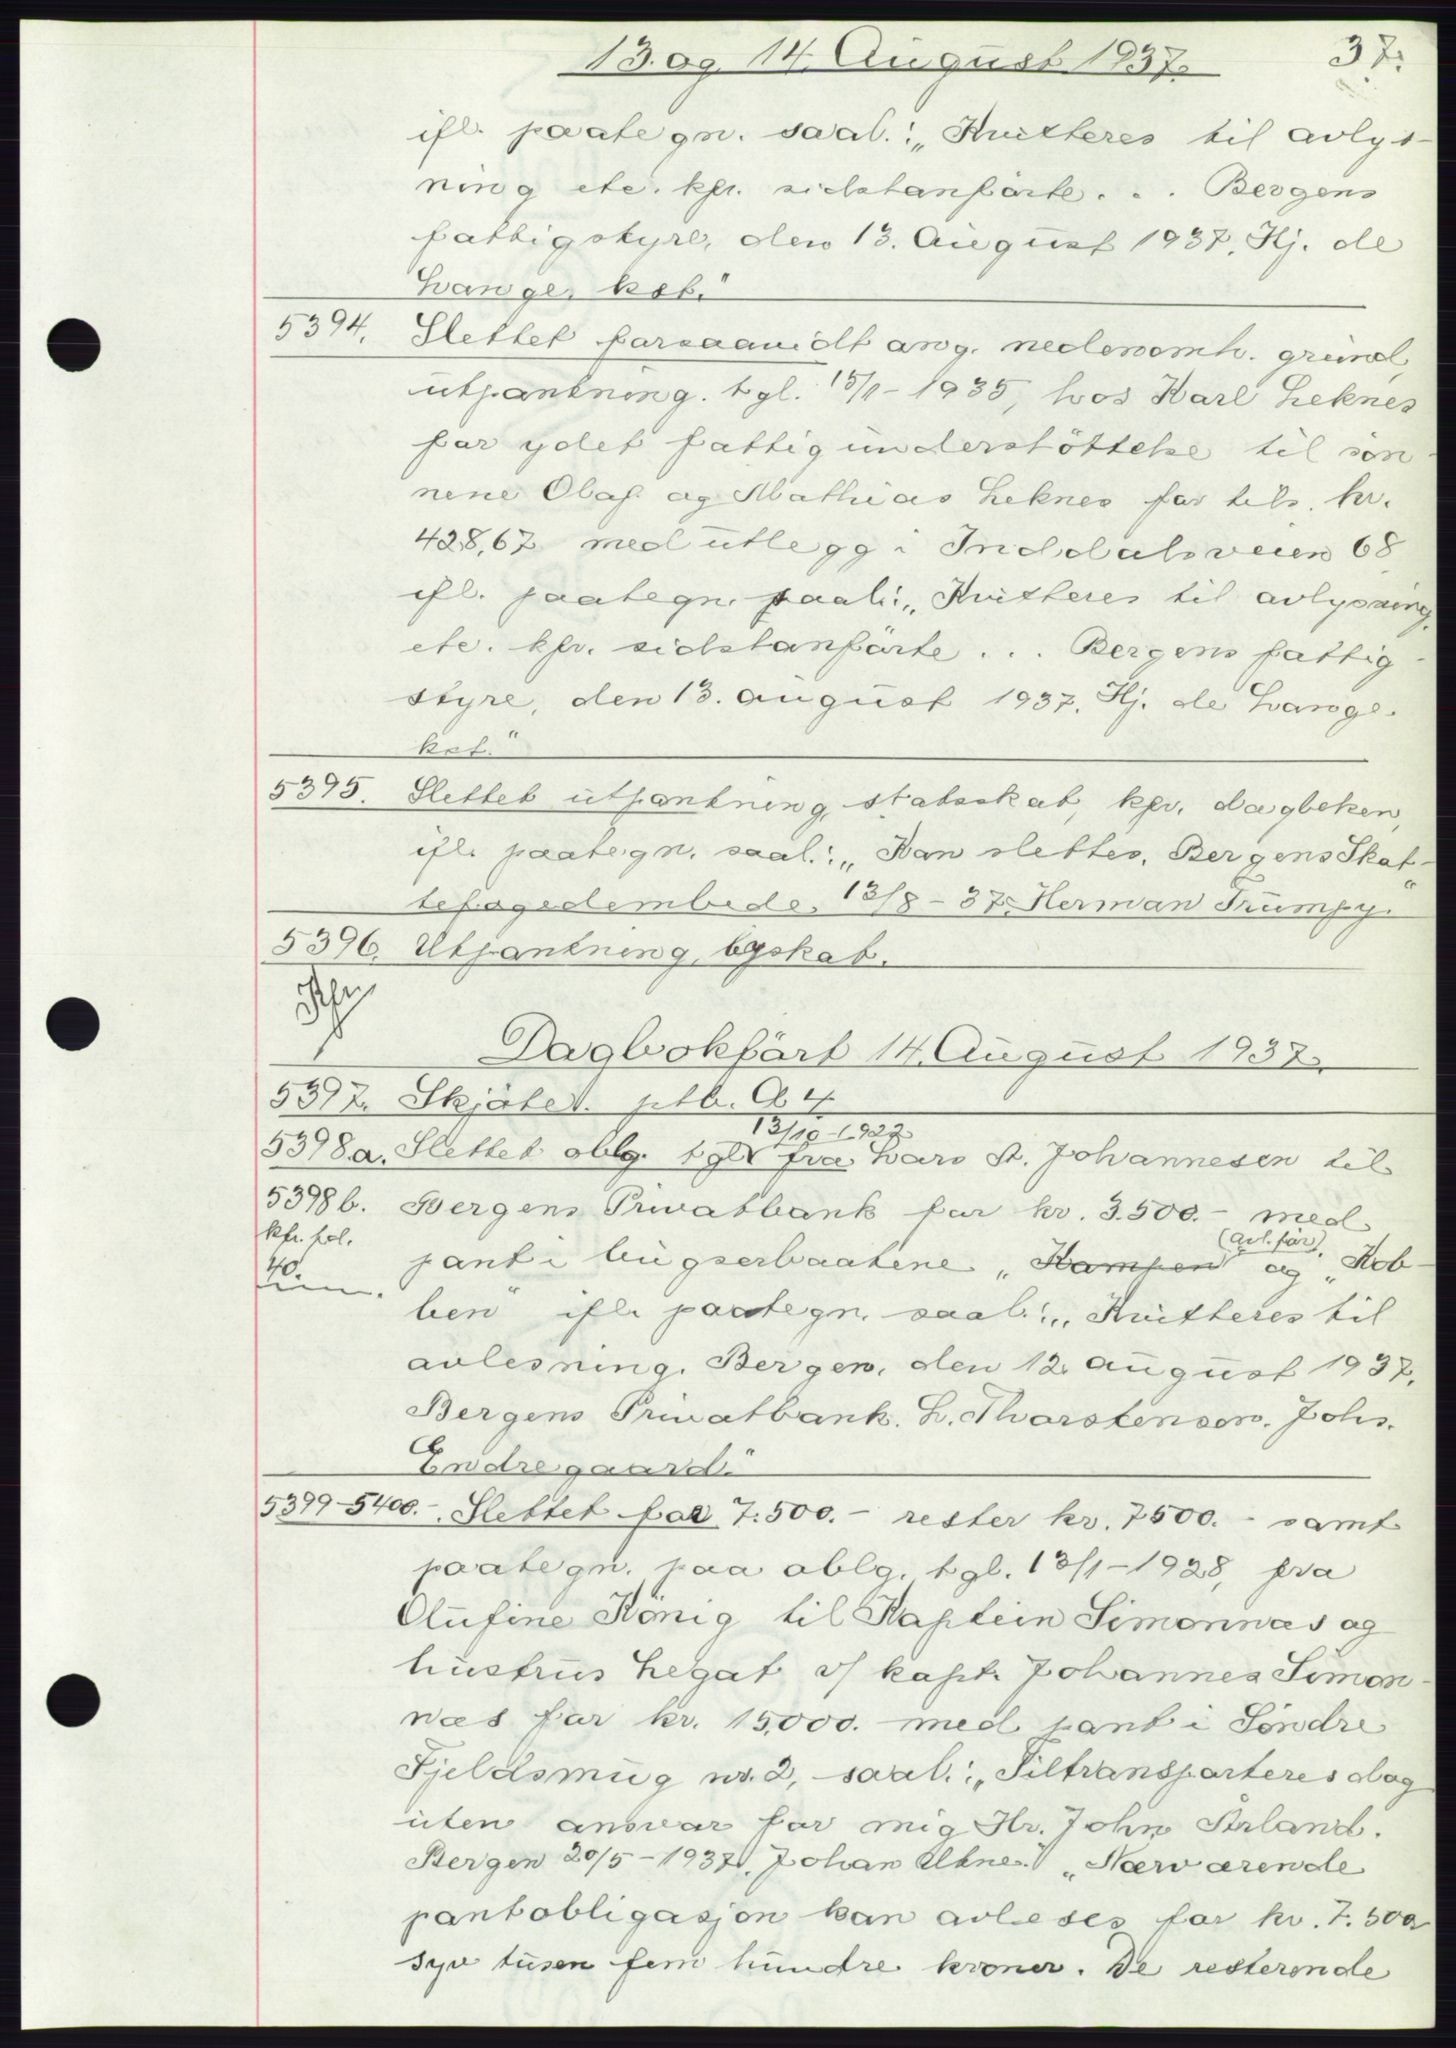 13. og 14. August 1937. 37.
ifl. paategn. saal.: „Kvitteres til avlys-
ning etc. kfr. sidstanførte . . . Bergens
fattigstyre, den 13. August 1937. Hj. de
Lange, kst."
5394. Slettet forsaavidt ang. nedenomh. grund,
utpantning. tgl. 15/1-1935, hos Karl Leknes
for ydet fattigunderstöttelse til sön-
nene Olaf og Mathias Leknes for tils. kr.
428,67 med utlegg i Inddalsveien 68
ifl. paategn. saal.: „Kvitteres til avlysning
etc. kfr. sidstanförte . . . Bergens fattig-
styre, den 13. august 1937. Hj. de Lange.
kst."
5395. Slettet utpantning, statsskat, kfr. dagboken,
ifl. paategn. saal.: „Kan slettes. Bergens Skat-
tefogedembede. 13/8-37. Herman Trumpy."
5396. Utpantning, byskat.
Dagbokfört 14. August 1937.
5397. Skjöte. ptb. A 4
13/10-1927
5398a. Slettet oblg. tgl. fra Lars A. Johannesen til
5398b. Bergens Privatbank for kr. 3.500.- med
kfr. fol.
40.
(avl. för)
pant i bugserbaatene „Kampen" og „Kob-
ben" ifl. paategn. saal.: „Kvitteres til
avlesning. Bergen, den 12. august 1937.
Bergens Privatbank. L. Thorstenson. Johs.
Endregaard."
5399-5400.- Slettet for 7.500.- rester kr. 7500.- samt
paategn. paa oblg. tgl. 13/1-1928, fra
Olufine König til Kaptein Simonnæs og
hustrus Legat v/ kapt. Johannes Simon-
næs for kr. 15,000.- med pant i Söndre
Fjeldsmug nr. 2, saal.: „Tiltransporteres dog
uten ansvar for mig Hr. John Årland.
Bergen 20/5-1937. Johan Utne." „Nærværende
pantobligasjon kan avleses for kr. 7.500
syv tusen fem hundre kroner. De resterende